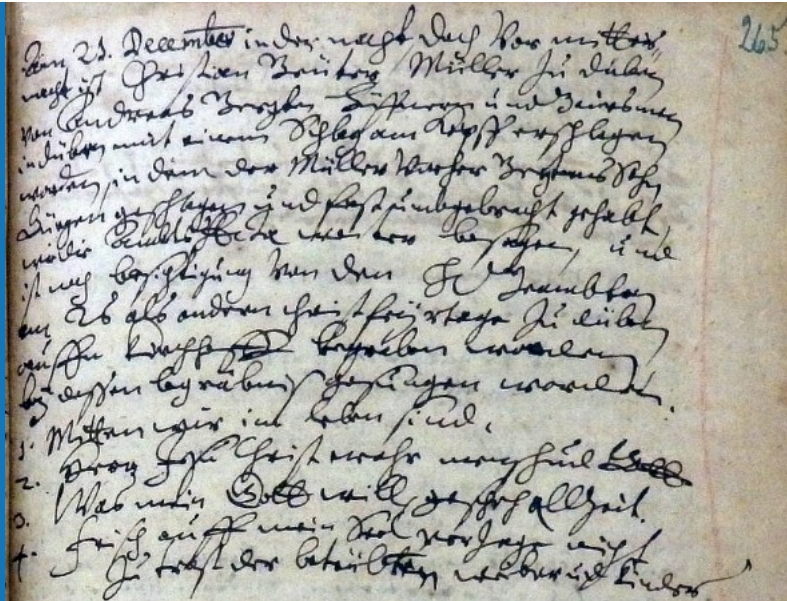 265
Den 21. December in der nacht doch vor mitter
nacht ist Christian Reuter Müller zu düben
von Andreas Bergten Hüffnern und
in düben mit einem Schlag am Kopff erschlagen
worden, in dem der Müller vorher Sohn
Jürgen geschlagen und fast umbgebracht gehabt,
wie die Ambts Acta weiter besagen, und
ist nach besichtigung von den H Beambten
am 26 als andern Christfeyrtage zu düben
auffn Kirchhoff begraben worden,
bey dessen begräbnis gesungen worden.
1. Mitten wir im leben sind.
2. Herr Jesu Christ wahr mensch und Gott
3. Was mein Gott will, gescheh allzeit.
4. Frisch auff mein Seel verzage nicht
zu trost der betrübten weiber und Kinder